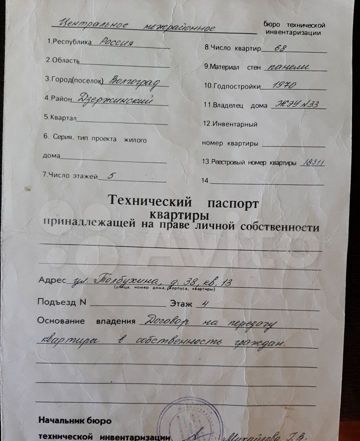 Центральное межрайонное бюро технической инвентаризации
1.Республика Россия
2.Область
3.Город(поселок) Волгоград
4.Район Дзержинский
5.Квартал
6. Серия, тип проекта жилого
дома
7.Число этажей 5
8.Число квартир 68
9.Материал стен панели
10.Год постройки 1970
11.Владелец дома ЖЭУ №33
12.Инвентарный
номер квартиры
13.Реестровый номер квартиры 18311
14
Технический паспорт
квартиры
принадлежащей на праве личной собственности
Адрес ул Толбухина, д. 38, кв. 13
(улица, номер дома, корпуса, квартиры)
Подъезд N Этаж 4
Основание владения Договор на передачу
квартиры в собственность граждан.
Начальник бюро
технической инвентаризации Михайлова Г.В.